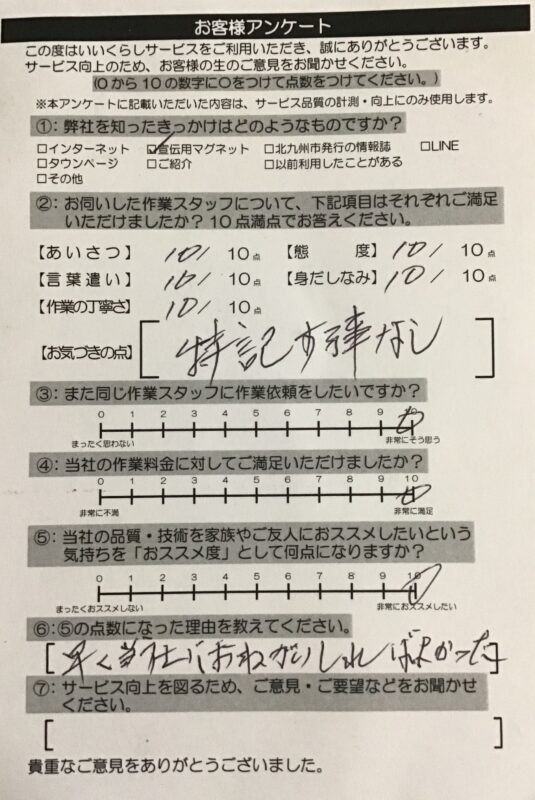 お客様アンケート
この度はいいくらしサービスをご利用いただき、誠にありがとうございます。
サービス向上のため、お客様の生のご意見をお聞かせください。
(0から10の数字に○をつけて点数をつけてください。)
※本アンケートに記載いただいた内容は、サービス品質の計測・向上にのみ使用します。
①：弊社を知ったきっかけはどのようなものですか？
□インターネット ☑宣伝用マグネット □北九州市発行の情報誌 □LINE
□タウンページ □ご紹介 □以前利用したことがある
□その他
②：お伺いした作業スタッフについて、下記項目はそれぞれご満足
いただけましたか？10点満点でお答えください。
【あいさつ】 10/ 10点 【態 度】 10/ 10点
【言葉遣い】 10/ 10点 【身だしなみ】 10/ 10点
【作業の丁寧さ】 10/ 10点
【お気づきの点】 [特記す事なし]
③：また同じ作業スタッフに作業依頼をしたいですか？
0 1 2 3 4 5 6 7 8 9 10
まったく思わない 非常にそう思う
④：当社の作業料金に対してご満足いただけましたか？
0 1 2 3 4 5 6 7 8 9 10
非常に不満 非常に満足
⑤：当社の品質・技術を家族やご友人におススメしたいという
気持ちを「おススメ度」として何点になりますか？
0 1 2 3 4 5 6 7 8 9 10
まったくおススメしない 非常におススメしたい
⑥：⑤の点数になった理由を教えてください。
[早く当社におねがいしればよかった]
⑦：サービス向上を図るため、ご意見・ご要望などをお聞かせ
ください。
[ ]
貴重なご意見をありがとうございました。